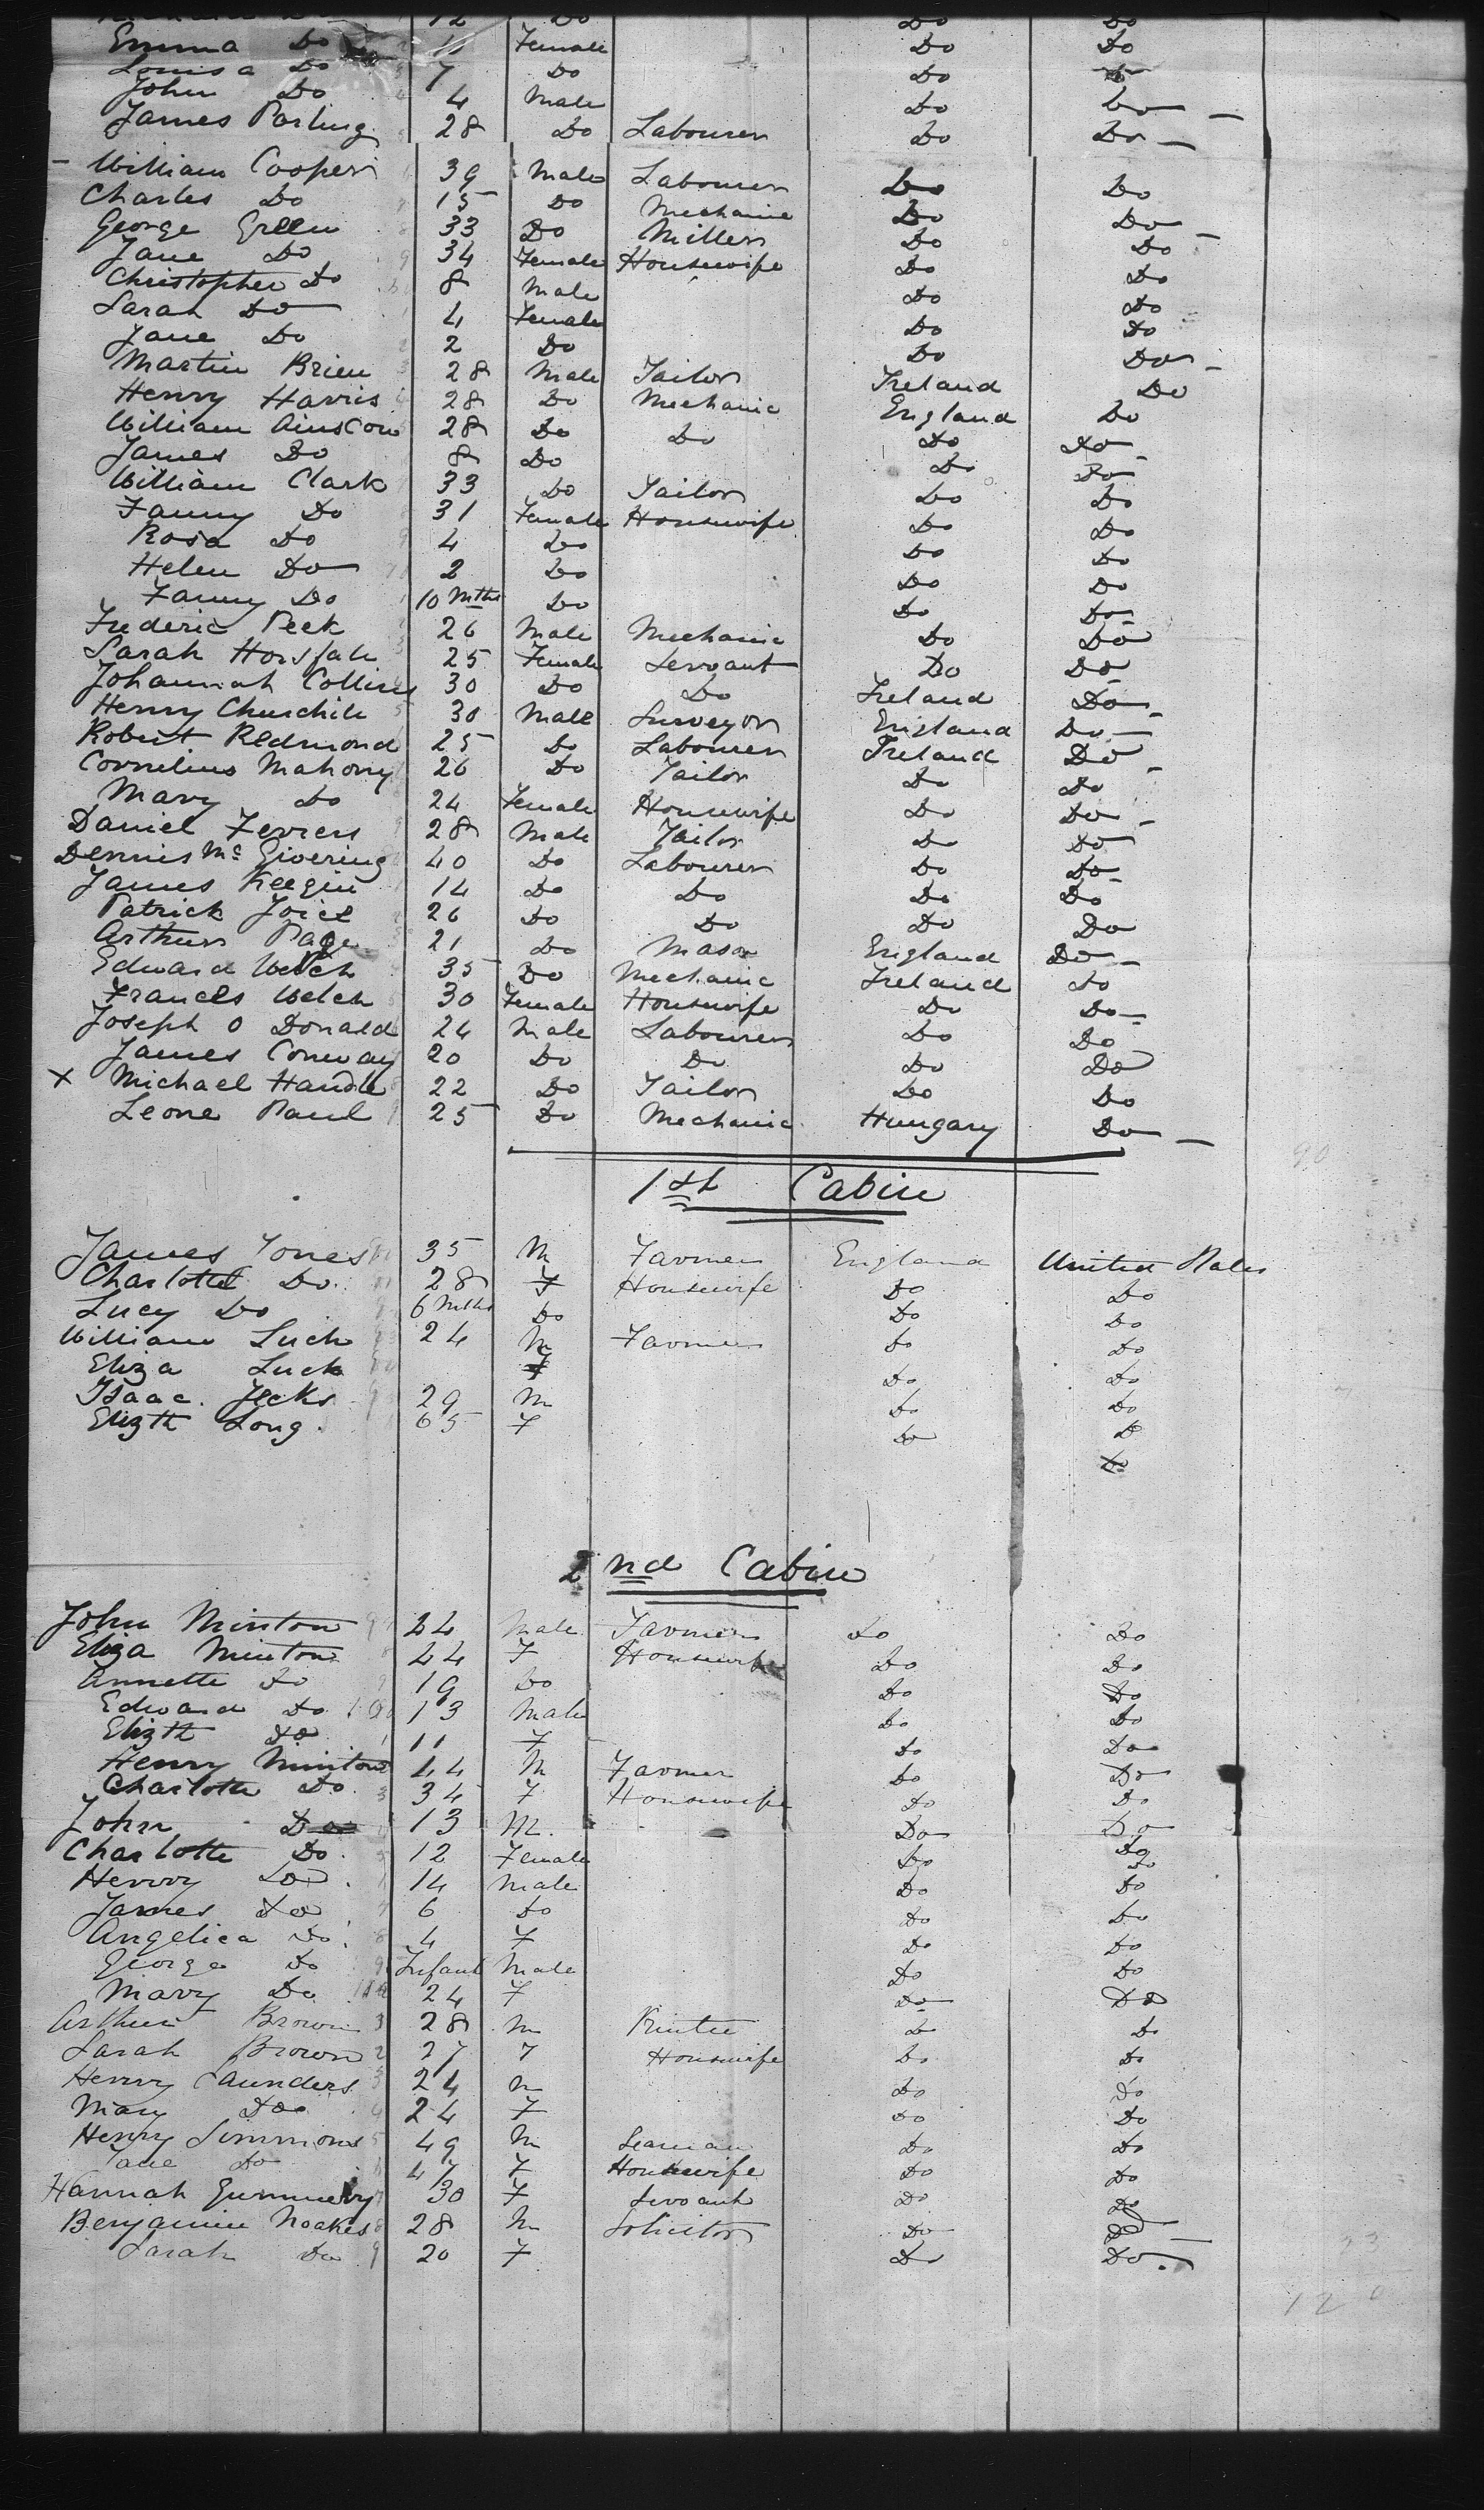 12 Do Do Do
Emma Do 11 Female Do Do
Louisa Do 7 Do Do Do
John Do 4 Male Do Do
James Parling 28 Do Labourer Do Do
William Cooper 39 Male Labourer Do Do
Charles Do 15 Do Mechanic Do Do
George Green 33 Do Miller Do Do
Jane Do 34 Female Housewife Do Do
Christopher Do 8 Male Do Do
Sarah Do 4 Female Do Do
Jane Do 2 Do Do Do
Martin Brien 28 Male Tailor Ireland Do
Henry Harris 28 Do Mechanic England Do
William Ainscow 28 Do Do Do Do
James Do 8 Do Do Do
William Clark 33 Do Tailor Do Do
Fanny Do 31 Female Housewife Do Do
Rosa Do 4 Do Do Do
Helen Do 2 Do Do Do
Fanny Do 10 Mths Do Do Do
Frederic Peek 26 Male Mechanic Do Do
Sarah Horsfall 25 Female Servant Do Do
Johannah Collins 30 Do Do Ireland Do
Henry Churchill 30 Male Surveyor England Do
Robert Redmond 25 Do Labourer Ireland Do
Cornelius Mahony 26 Do Tailor Do Do
Mary Do 24 Female Housewife Do Do
Daniel Ferrers 28 Male Tailor Do Do
Dennis Mc Givering 40 Do Labourer Do Do
James Keegin 14 Do Do Do Do
Patrick Joice 26 Do Do Do Do
Arthur Page 21 Do Mason England Do
Edward Welch 35 Do Mechanic Ireland Do
Frances Welch 30 Female Housewife Do Do
Joseph O Donald 24 Male Labourer Do Do
James Conway 20 Do Do Do Do
X Michael Handle 22 Do Tailor Do Do
Leone Paul 25 Do Mechanic Hungary Do
90
1st Cabin
James Jones 35 M Farmer England United States
Charlotte Do 28 F Housewife Do Do
Lucy Do 6 Mths Do Do Do
William Luck 24 M Farmer Do Do
Eliza Luck F Do Do
Isaac Jecks 29 M Do Do
Elizth Long 65 F Do Do
Do
2nd Cabin
John Minton 44 Male Farmer Do Do
Eliza Minton 44 F Housewife Do Do
Annette Do 19 Do Do Do
Edward Do 13 Male Do Do
Elizth Do 11 F Do Do
Henry Minton 44 M Farmer Do Do
Charlotte Do 34 F Housewife Do Do
John Do 13 M Do Do
Charlotte Do 12 Female Do Do
Henry Do 14 Male Do Do
James Do 6 Do Do Do
Angelica Do 4 F Do Do
George Do Infant Male Do Do
Mary Do 24 F Do Do
Arthur Brown 28 M Printer Do Do
Sarah Brown 27 F Housewife Do Do
Henry Saunders 24 M Do Do
Mary Do 24 F Do Do
Henry Simmons 49 M Seaman Do Do
Jane Do 47 F Housewife Do Do
Hannah Gummery 30 F Servant Do Do
Benjamin Noakes 28 M Solicitor Do Do
Sarah Do 20 F Do Do